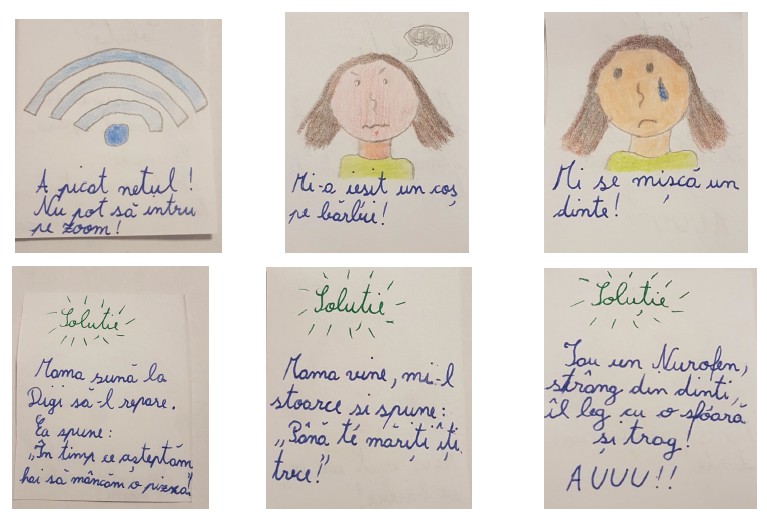 A picat netul!
Nu pot să intru
pe zoom!
Mi-a iesit un coș
pe bărbie!
Mi se mișcă un
dinte!
Soluție
Mama sună la
Digi să-l repare.
Ea spune:
„În timp ce așteptăm
hai să mâncăm o pizza"
Soluție
Mama vine, mi-l
stoarce si spune:
„Până te măriți îți
trece!"
Soluție
Iau un Nurofen,
strâng din dinți,
îl leg cu o sfoară
și trag!
AUUU!!